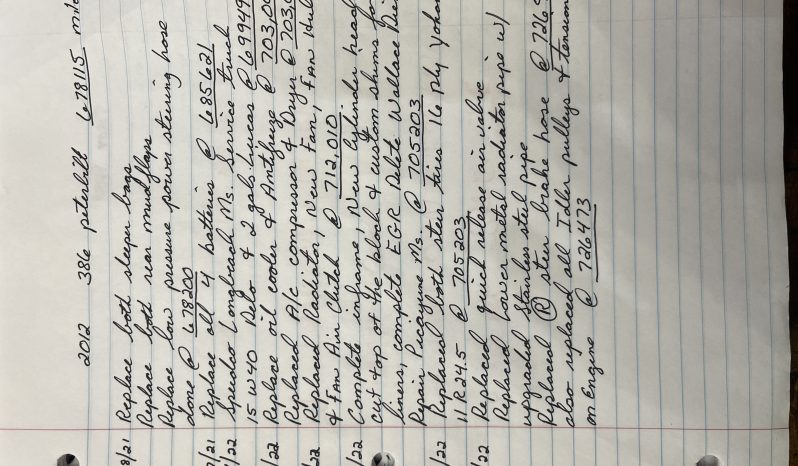 2012 386 peterbilt 678115
8/21 Replace both sleeper bags
Replace both rear mud flaps
Replace low pressure power steering hose
done @ 678200
/21 Replace all 4 batteries @ 685621
/22 Speedco Longbeach Ms. Service truck
15 W 40 Delo & 2 gals Lucas @ 69949
/22 Replace oil cooler & Antifreeze @ 703,00
Replaced A/c compressor & Dryer @ 703,0
22 Replaced Radiator, New Fan, Fan Hub
& Fan Air Clutch @ 712,010
/22 Complete inframe, New Cylinder head
cut top of the block & custom shims
liners, complete EGR Delete Wallace
Repair Picayune Ms. @ 705203
/22 Replaced both steer tires 16 ply
11 R 24.5 @ 705203
/22 Replaced quick release air valve
Replaced Lower metal radiator pipe w/
upgraded Stainless steel pipe
Replaced Ⓡ steer brake hose @ 726
also replaced all Idler pulleys & tension
on Engine @ 726473